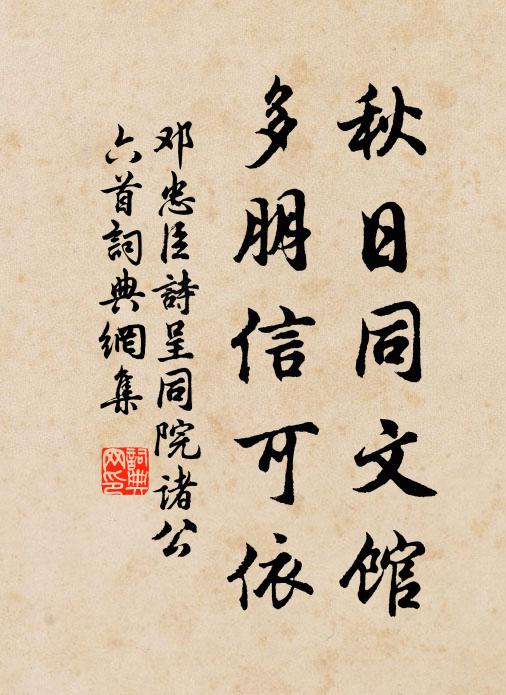 秋日同文館
多朋信可依
邓忠臣詩呈同院諸公
六首詞典網集
詞典
网印